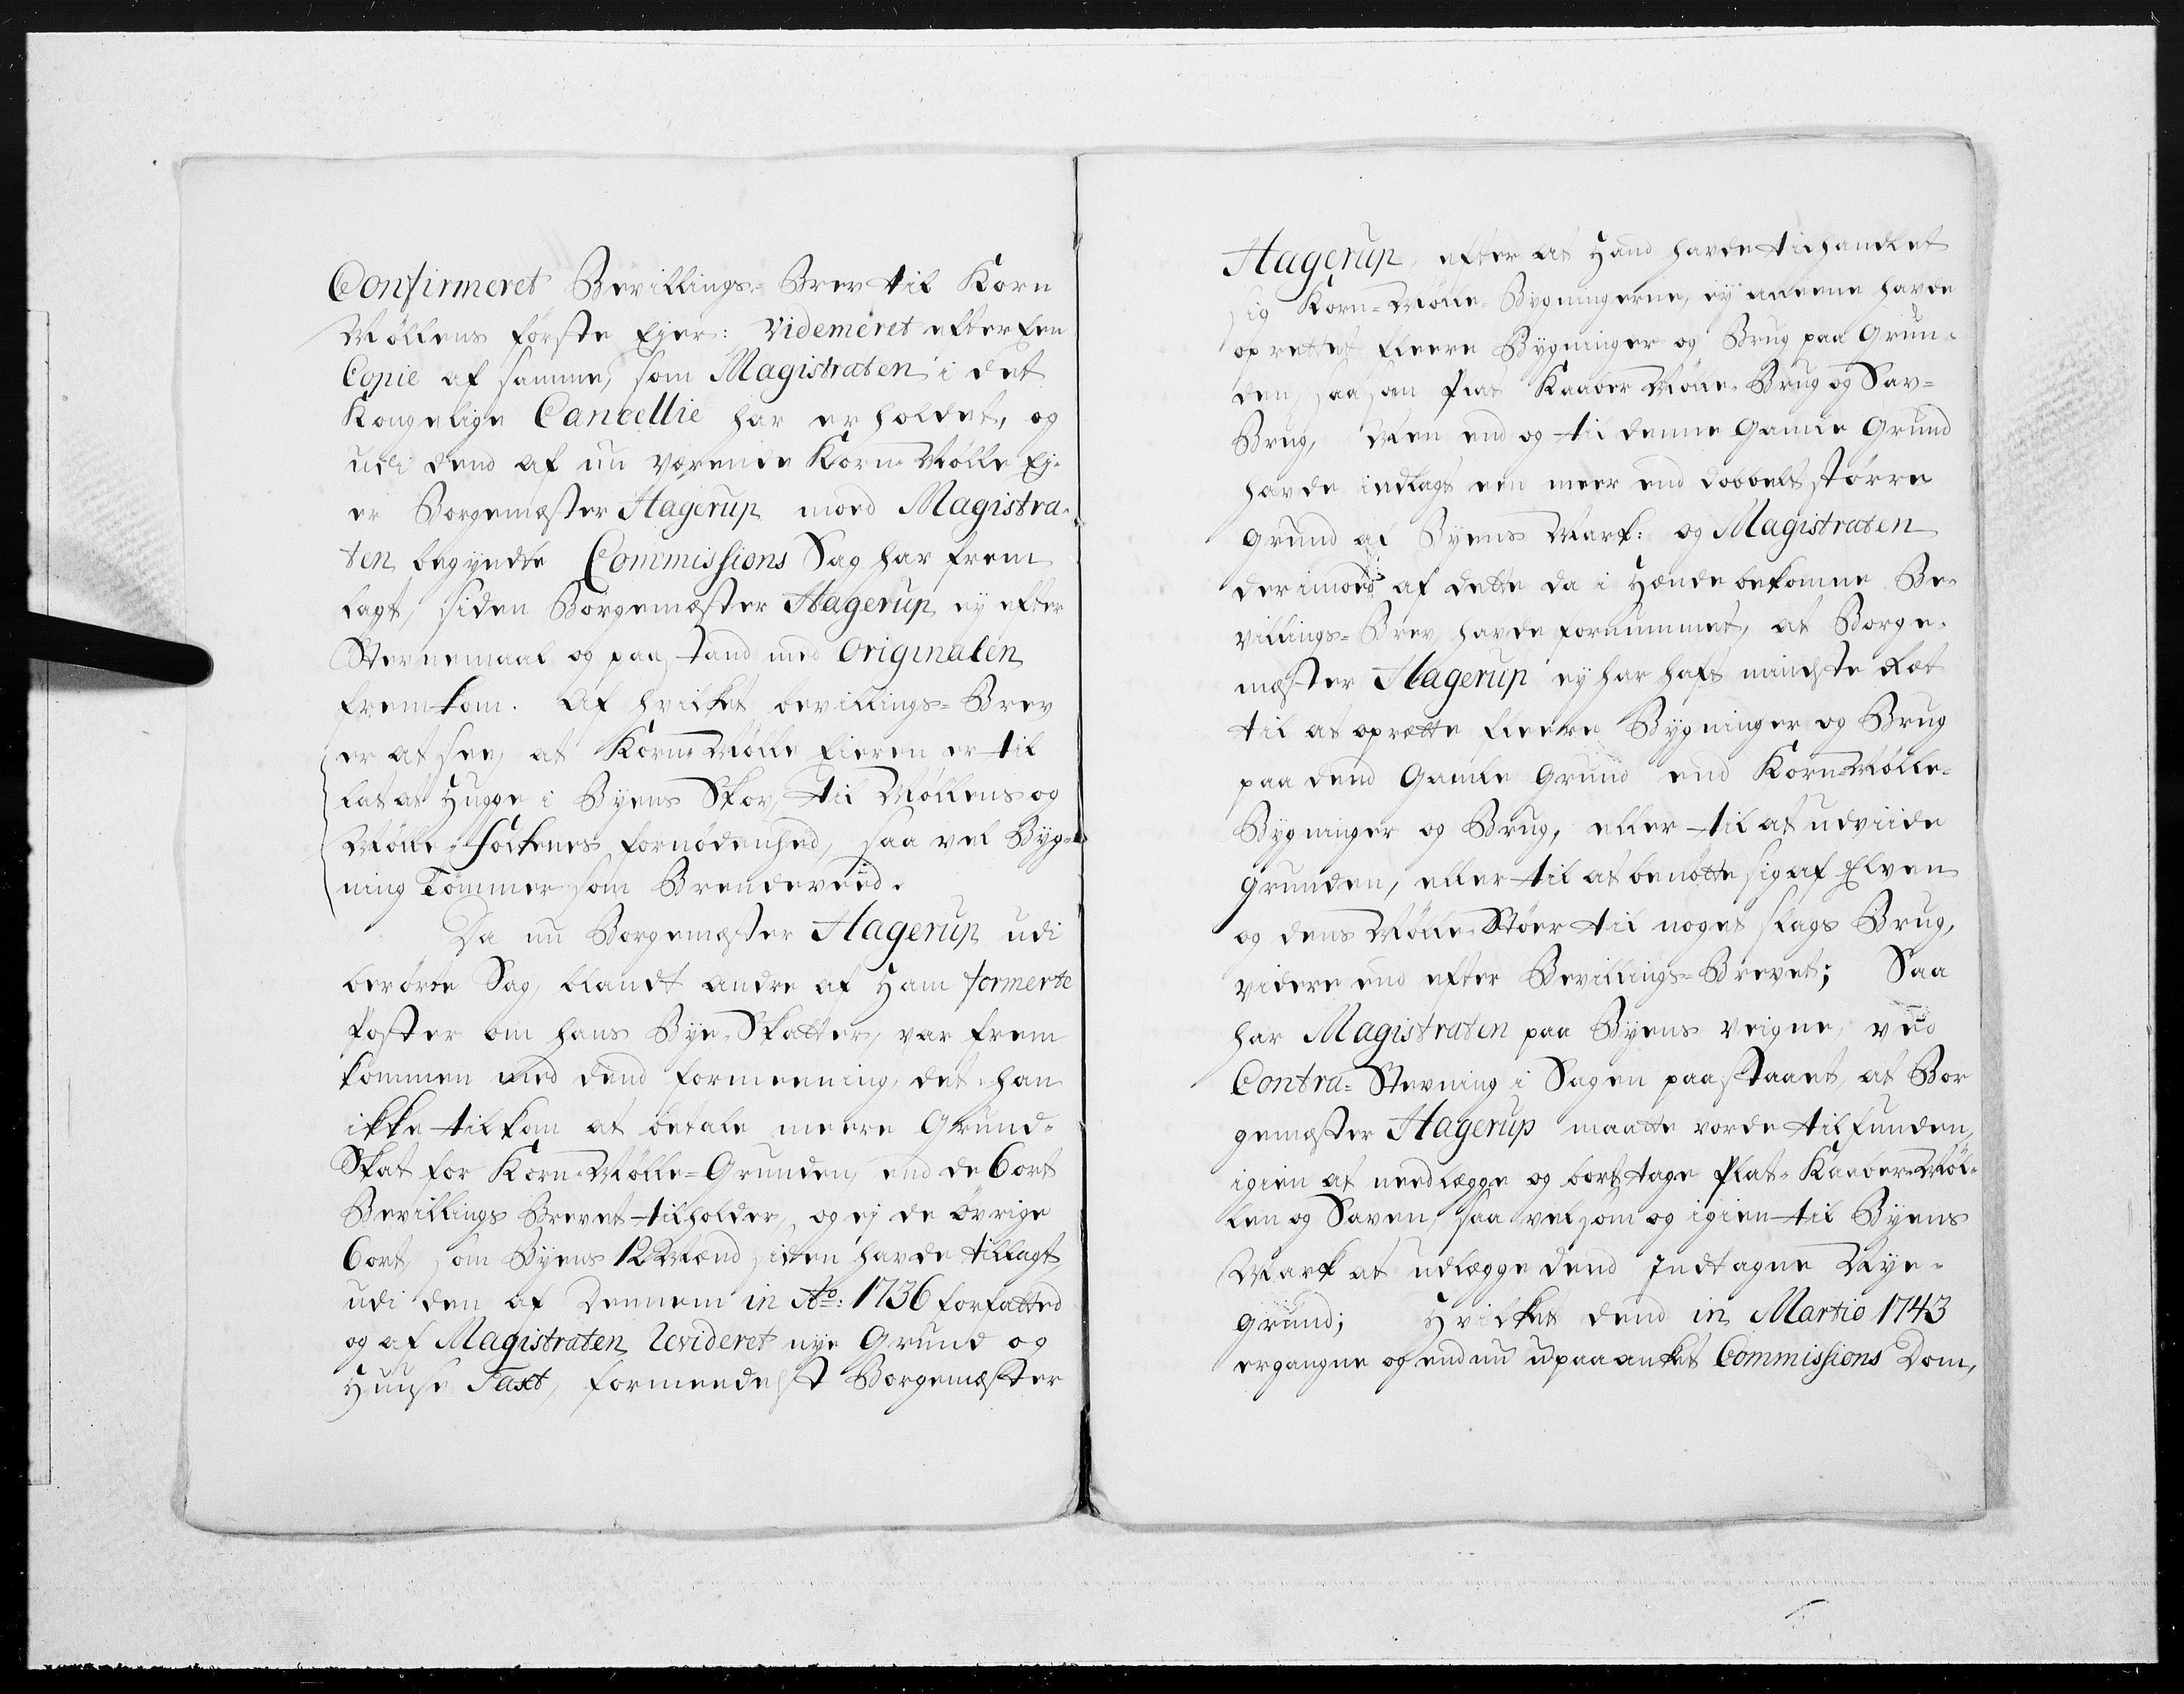 Confirmeret Bevillings-Brev til Korn
Möllens förste Ejer: Videmeret efter Een
Copie af samme, som Magistraten i det
Kongelige Cancellie har erholdet, og
udi dend af nu værende Korn-Mølle Ej-
er Borgemæster Hagerup moed Magistra-
ten begyndte Commissions Sag har frem
lagt, siden Borgemæster Hagerup ey efter
Stevnemaal og paastand med Originalen
fremkom. Af hvilket bevillings-Brev
er at see, at Korn-Mølle Eieren er til
lat at Hugge i Byens Skov, til Møllens og
Mölle-folkenes fornödenhed, saa vel Byg-
ning Tömmer som Brendeveed.
Da nu Borgemæster Hagerup udi
berörte Sag, blandt andre af Ham formerte
Poster om hans Bye-Skatter, var frem
kommen med dend formeening, det han
ikke tilkom at betale meere Grund-
Skat for Korn-Mølle-Grunden, end de 6 ort
Bevillings Brevet tilholder, og ej de övrige
6 ort, som Byens 12 Mænd siden havde tillagt
udi den af Dennem in Ao: 1736 forfatted
og af Magistraten Revideret nye Grund og
Huuse Taxt, formeedelst Borgemæster
Hagerup, efter at Hand havde tilhandlet
sig Korn-Mölle-Bygningerne, ey alleene havde
oprettet fleere Bygninger og Brug paa Grun-
den, saasom Plat Kaaber Mölle-Brug og Sav-
Brug, Men end og til denne Gamle Grund
havde indlagt een meer end dobbelt större
Grund af Byens Mark: og Magistraten
derimoed af dette da i Hænde bekomne Be-
villings-Brev, havde fornummet, at Borge-
mæster Hagerup ey har haft mindste Ræt
til at oprætte fleere Bygninger og Brug
paa dend Gamle Grund end Korn-Mølle-
Bygninger og Brug, eller til at udviide
Grunden, eller til at benötte sig af Elven
og dens Mölle-Stöer til noget slags Brug,
videre end efter Bevillings-Brevet; Saa
har Magistraten paa Byens Veigne, ved
Contra-Stevning i Sagen paastaaet, at Bor
gemæster Hagerup maatte vorde tilfunden,
igien at needlægge og borttage Plat-Kaaber-Möl-
len og Saven, saa vel som og igien til Byens
Mark at udlægge dend Indtagne Nye-
Grund; Hvilket dend in Martio 1743
ergangne og endnu upaaanket Commissions Dom,